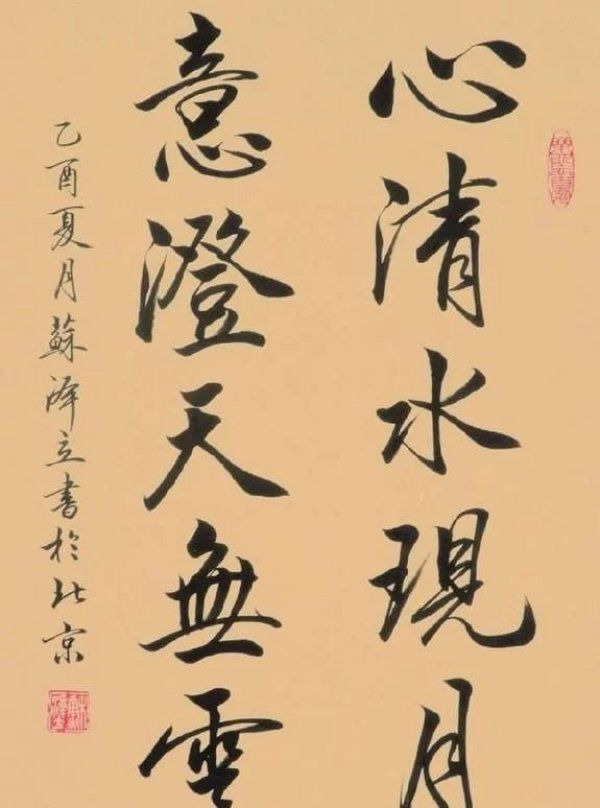 心清水現月
意澄天無雲
乙酉夏月蘇澤立書於北京